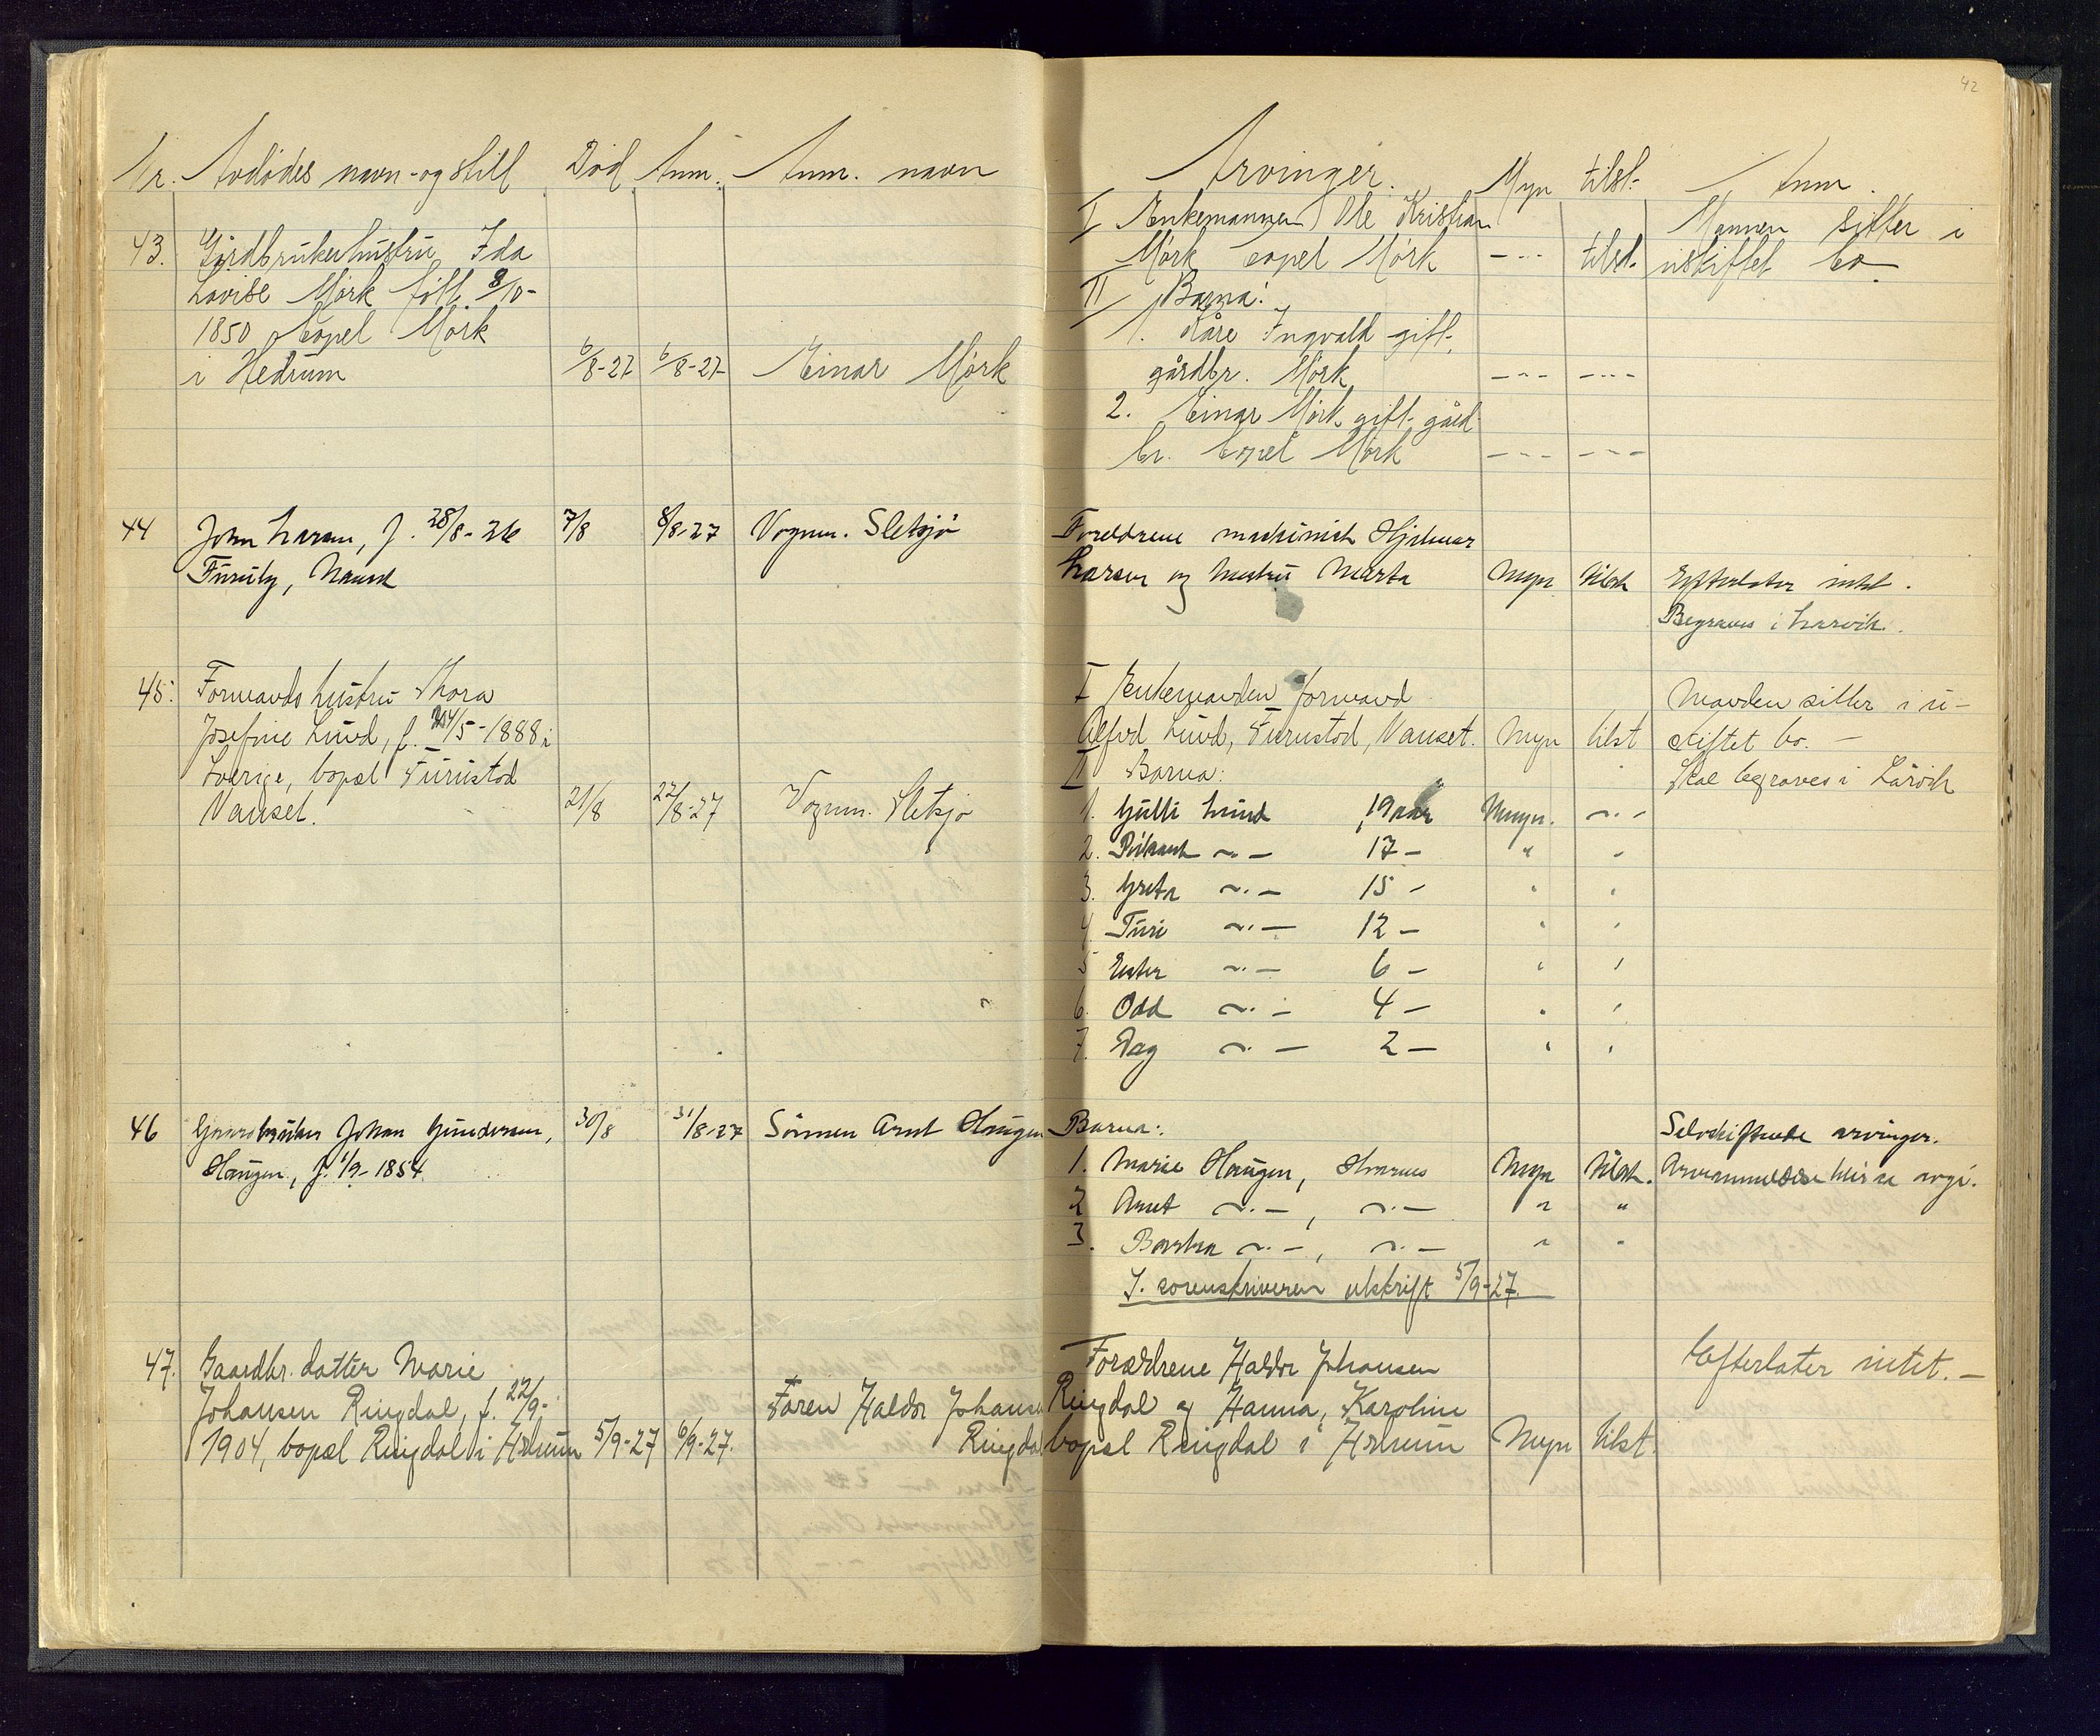 42
Nr. Avdødes navn og still Død Anm. Anm. navn
43. Gårdbrukerhustru Ida
Lovise Mørk født 8/10-
1850 bopel Mørk
i Hedrum 6/8-27 6/8-27 Einar Mørk
44 John Larsen, f. 28/8-26 7/8 8/8-27 Vognm. Sletsjø
Furuly, Nanset
45. Formands hustru Thora
Josefine Lund, f. 24/5-1888 i
Sverige, bopæl Furustod
Nanset. 21/8 22/8-27 Vognm. Sletsjø
46 Gaardbruker Johan Gundersen, 30/8 31/8-27 Sönnen Arnt Haugen
Haugen, f. 1/9-1854.
47. Gaardbr. datter Marie
Johansen Ringdal, f. 22/9- Faren Haldor Johansen
1904, bopæl Ringdal i Hedrum 5/9-27 6/9-27. Ringdal
Arvinger. Myn tilst. Anm.
I Enkemannen Ole Kristian Mannen sitter i
Mørk bopel Mørk - - - tilst. uskiftet bo
II Barna:
1. Kåre Ingvald gift,
gårdbr. Mørk - - - - - -
2. Einar Mørk gift gård
br. bopel Mørk - - - - - -
Foreldrene maskinist Hjalmar
Larsen og hustru Marta Myn tilst Efterlater intet.
Begraves i Larvik.
I Enkemanden formand Manden sitter i u-
Alfred Lund, Furustod, Nanset. Myn tilst skiftet bo. -
II Barna: Skal begraves i Larvik
1. Gulli Lund 19 aar Umyn. -
2. -"- 17 - " "
3. Greta -"- 15 - " "
4 Turi -"- 12 - " "
5 Ester -"- 6 - " "
6. Odd -"- 4 - " "
7. Dag -"- 2 - " "
Barna: Selvskiftende arvinger.
1. Marie Haugen, Myn tilst. Arveanmeldelse blir
2 Arnt -"-, -"- " "
3. -"-, -"- " "
S. sorenskriveren utskrift 5/9-27.
Forældrene Haldor Johansen Efterlater intet. -
Ringdal og Hanna Karoline
bopæl Ringdal i Hedrum Myn tilst.